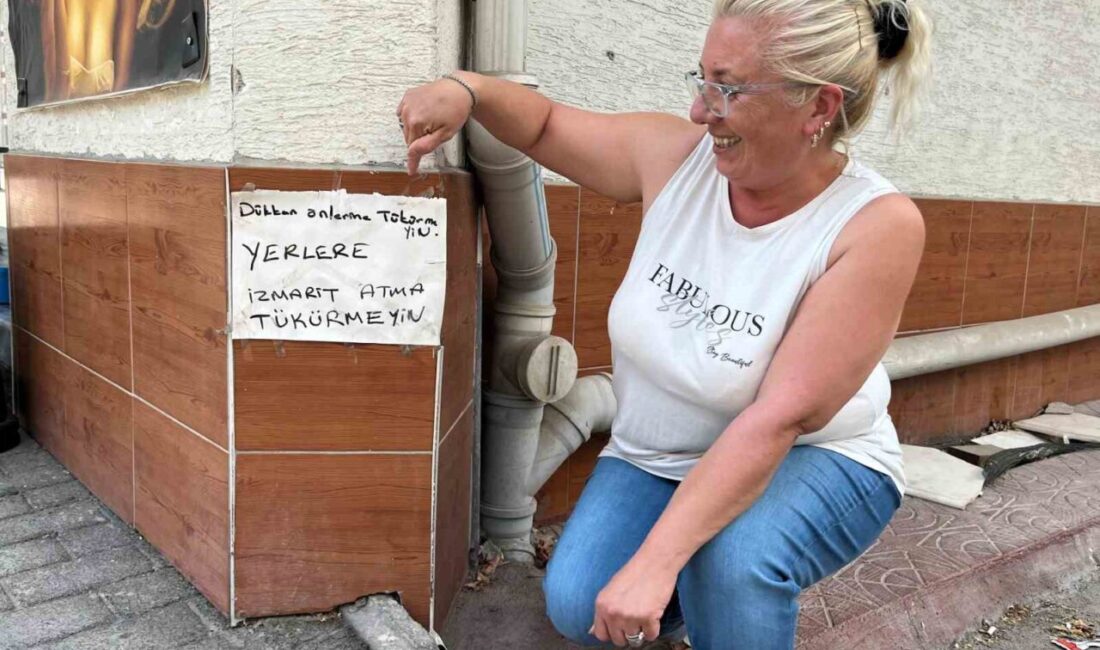 Dükkan önlerine Tükürme
yin.
YERLERE
İZMARİT ATMA
TÜKÜRMEYİN
FABULOUS
Styles
Stay Beautiful